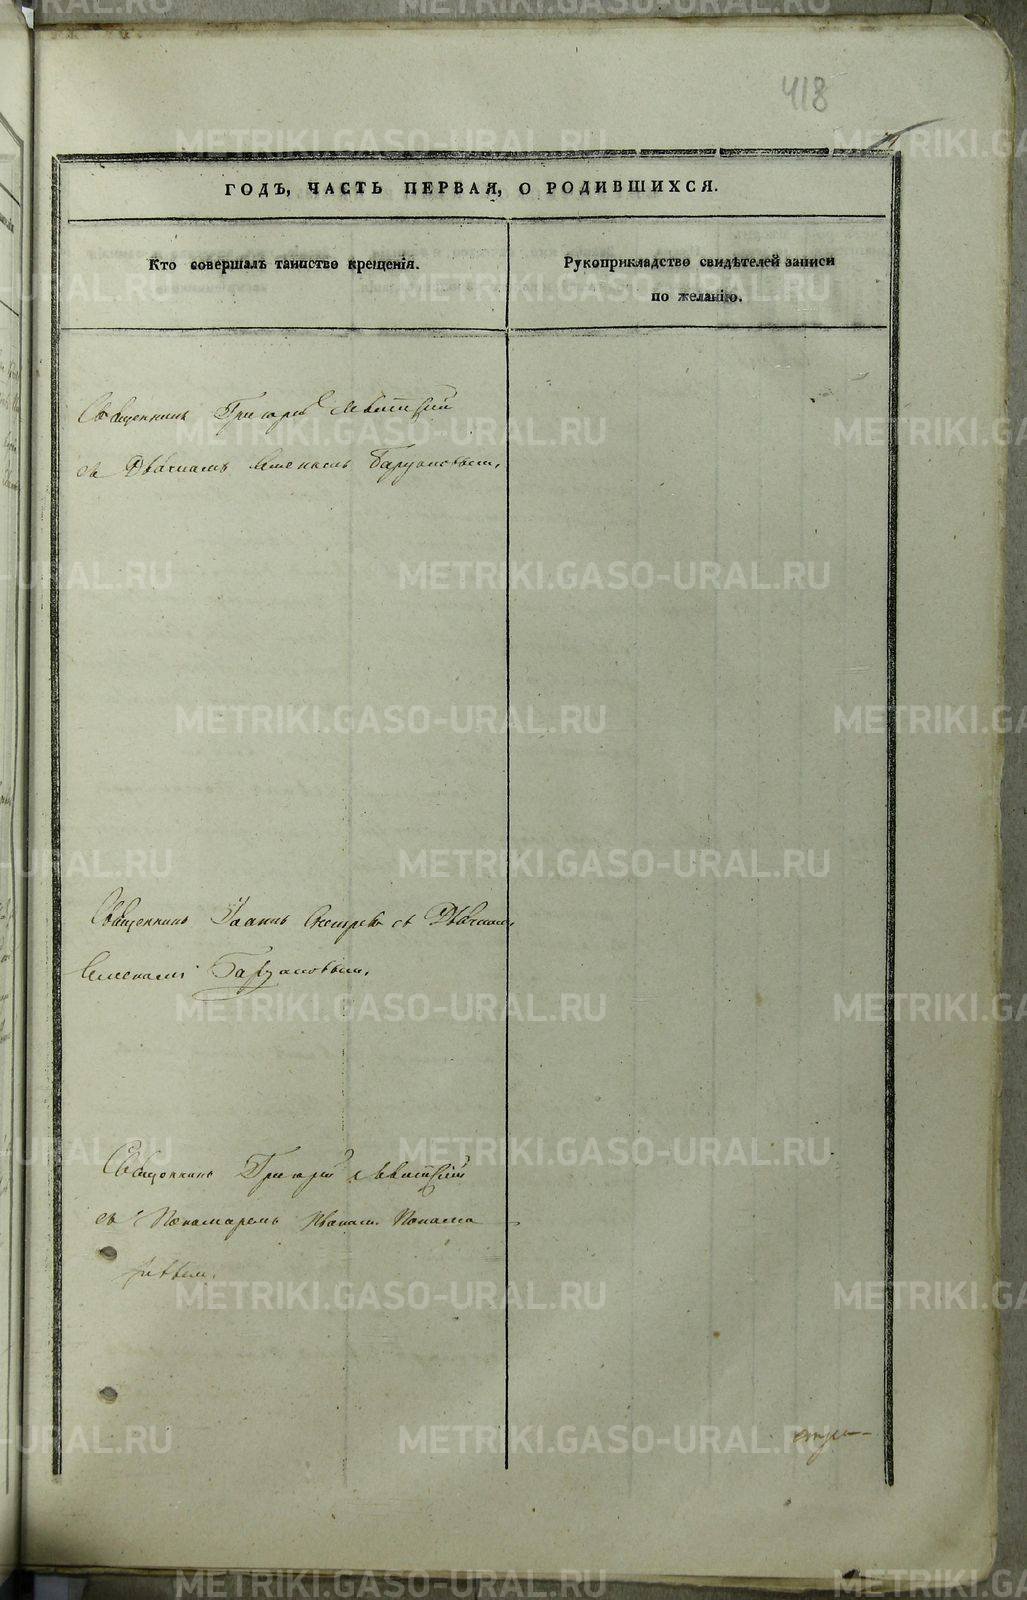 418
ГОДЪ, ЧАСТЬ ПЕРВАЯ, О РОДИВШИХСЯ.
Кто совершалъ таинство крещенія.
Рукоприкладство свидѣтелей записи
по желанію.
Священникъ Григорій Левитскій
съ Дьячкомъ Семеномъ
Священникъ Іоаннъ съ Дьячкомъ
Семеномъ
Священникъ Григорій Левитскій
съ Пономаремъ Иваномъ
METRIKI.GASO-URAL.RU